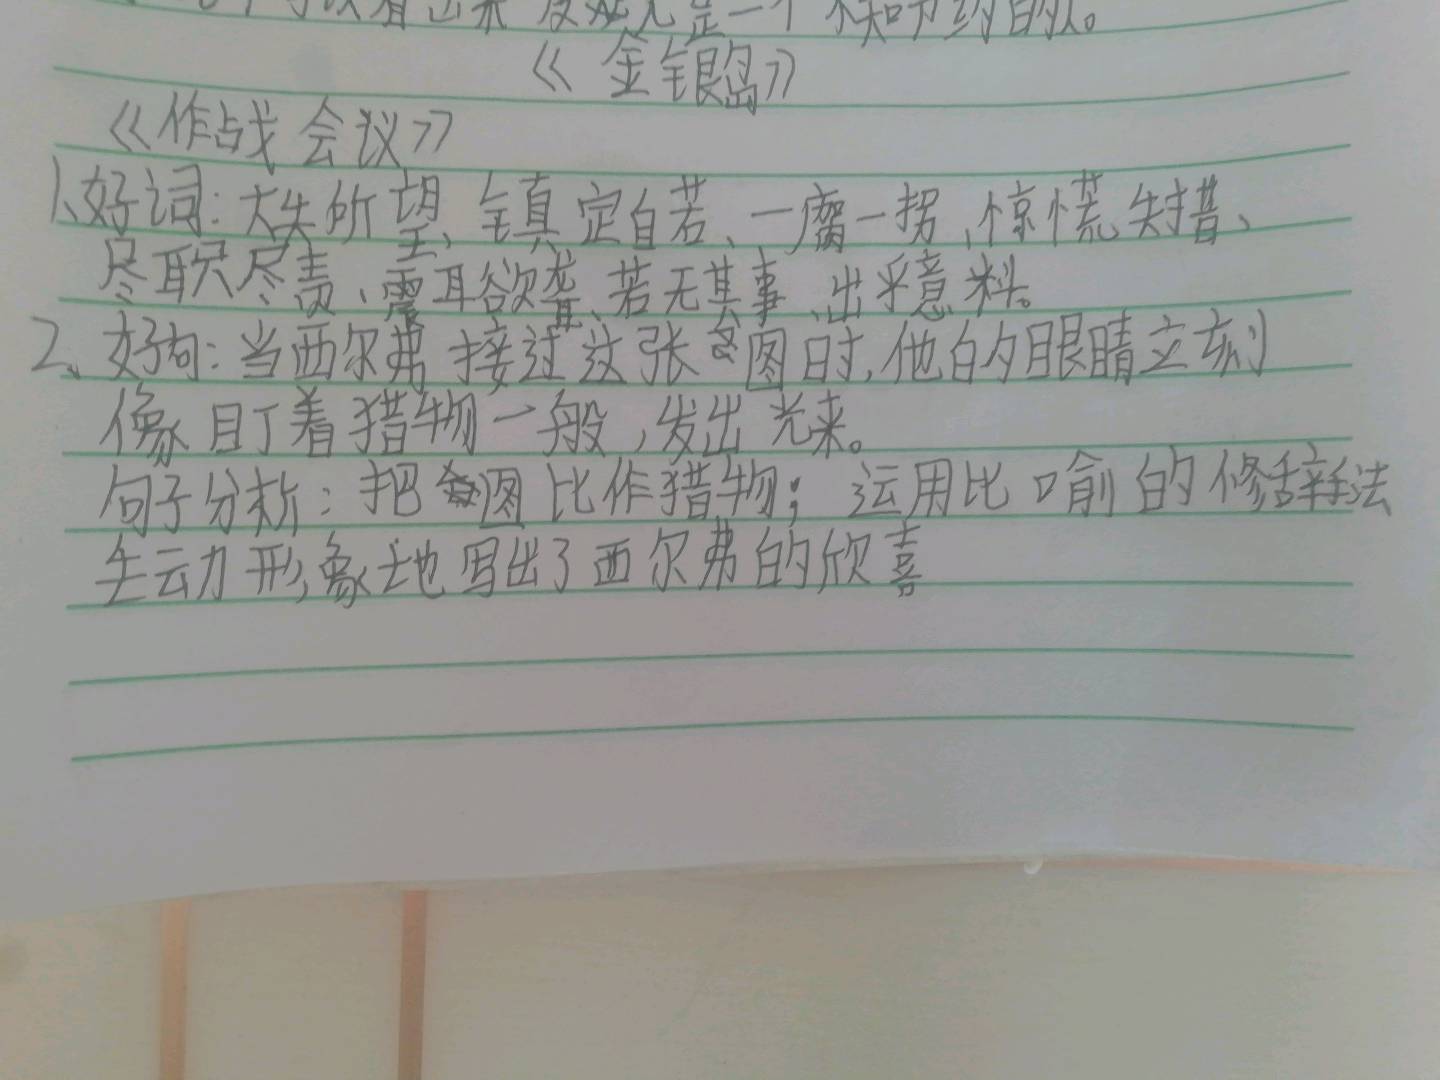 可以看出来 是一个不知节约的人。
《金银岛》
《作战会议》
1、好词：大失所望、镇定自若、一瘸一拐、惊慌失措、
尽职尽责、震耳欲聋、若无其事、出乎意料。
2、好句：当西尔弗接过这张图时，他的眼睛立刻
像盯着猎物一般，发出光来。
句子分析：把图比作猎物；运用比喻的修辞手法
生动形象地写出了西尔弗的欣喜